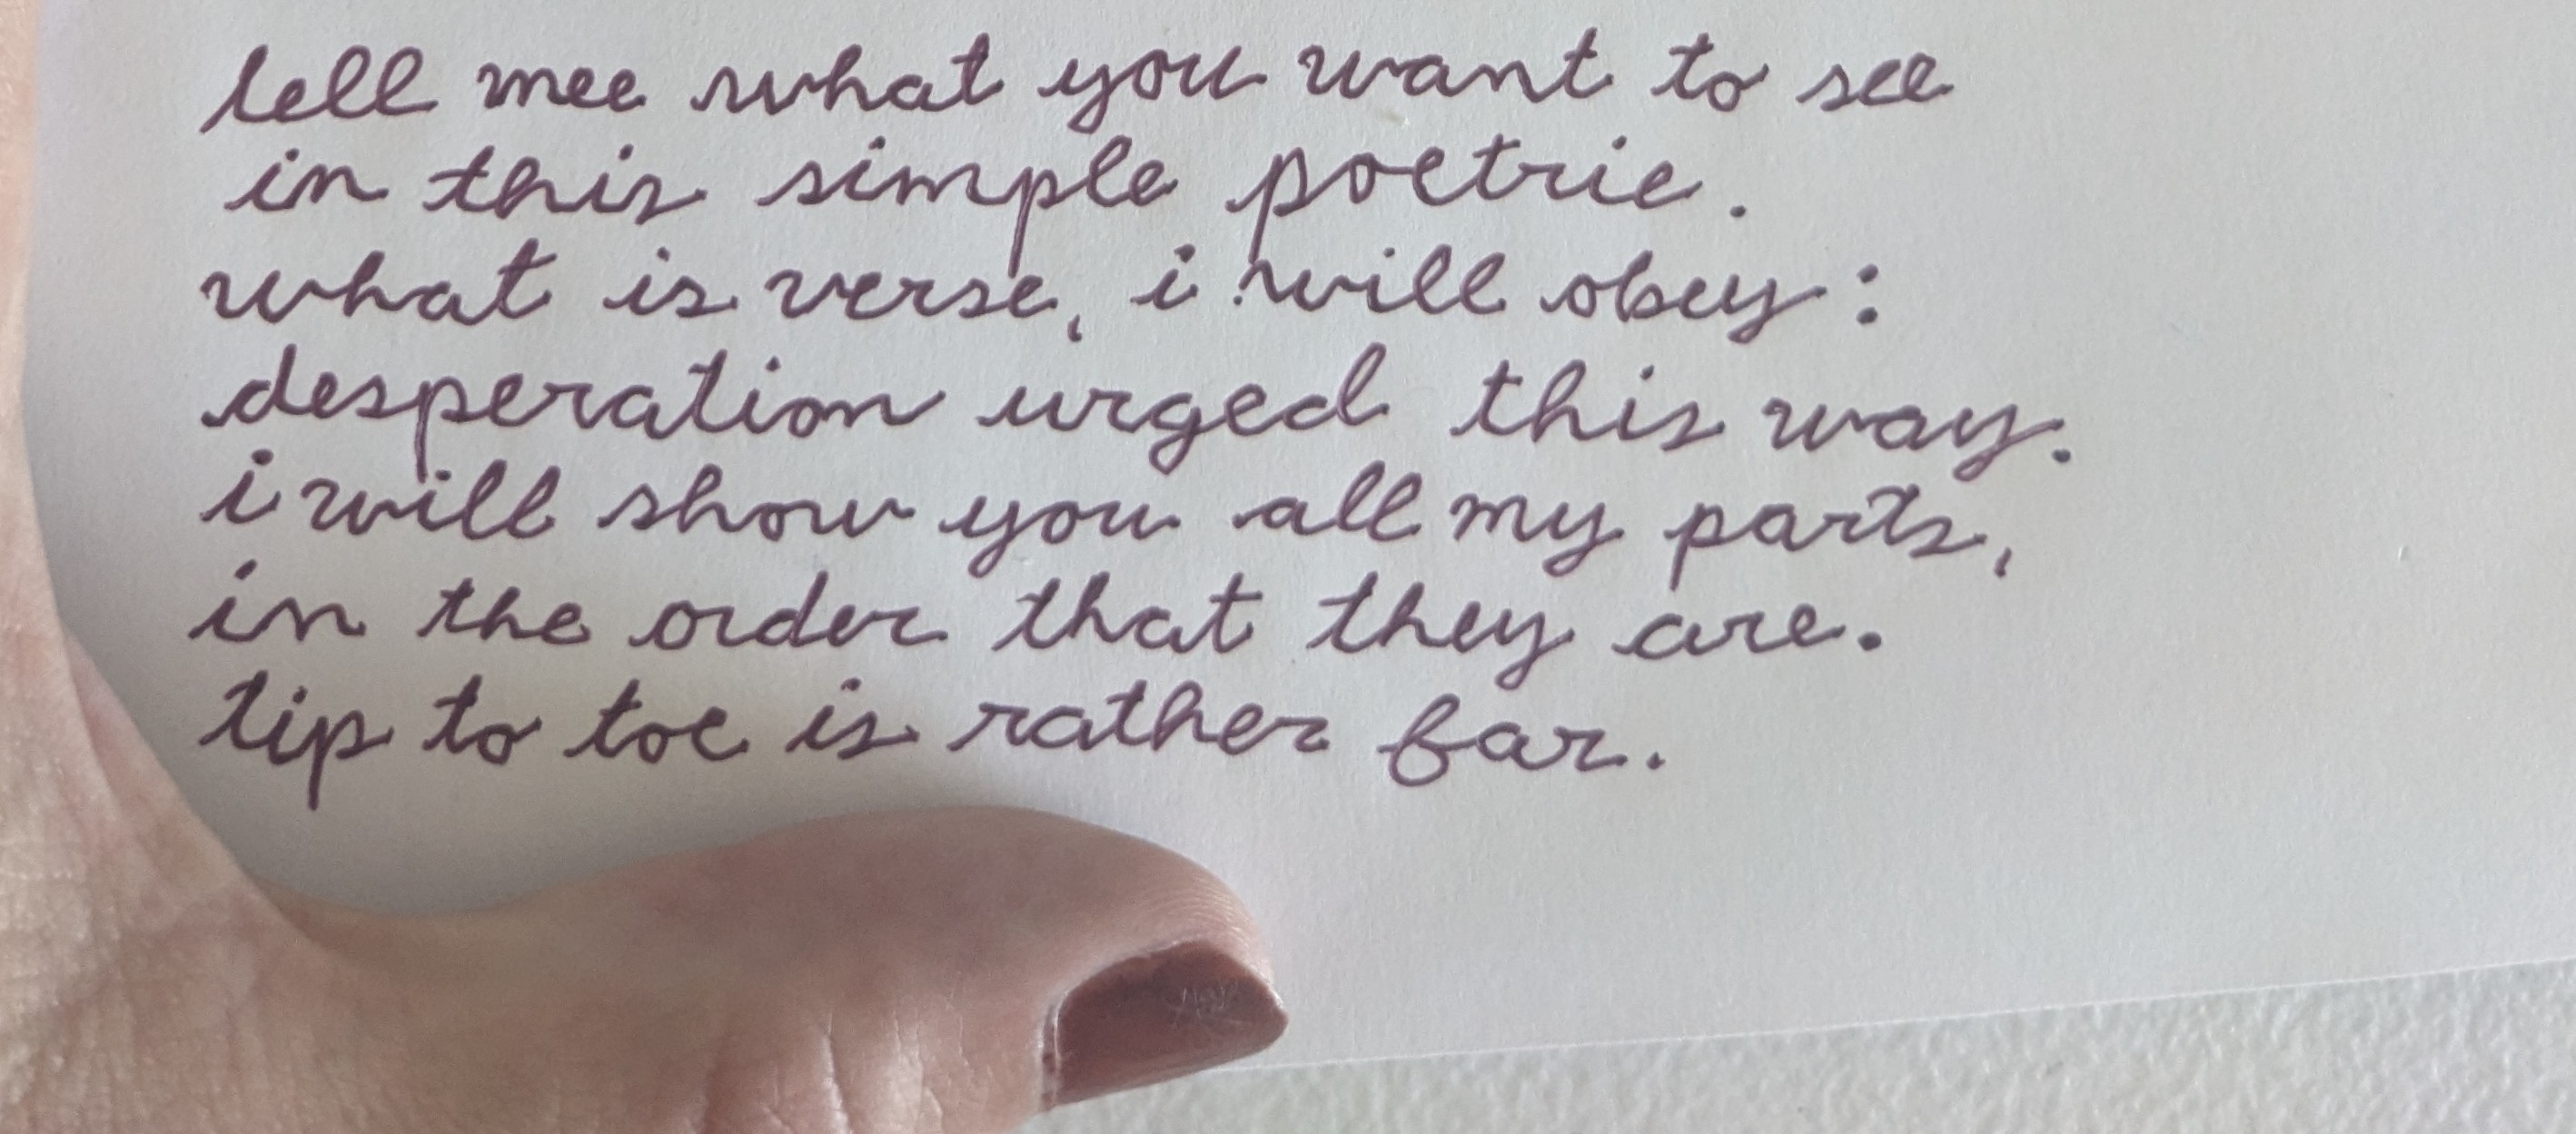 tell mee what you want to see
in this simple poetrie.
what is verse, i will obey:
desperation urged this way.
i will show you all my parts,
in the order that they are.
tip to toe is rather far.